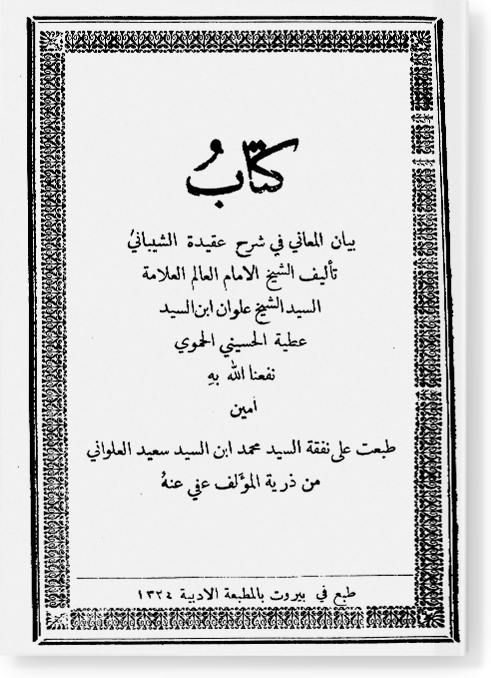 كتابُ
بيان المعاني في شرح عقيدة الشيباني
تأليف الشيخ الامام العالم العلامة
السيد الشيخ علوان ابن السيد
عطية الحسيني الحموي
نفعنا الله بهِ
امين
طبعت على نفقة السيد محمد ابن السيد سعيد العلواني
من ذرية المؤَّلف عفي عنهُ
طبع في بيروت بالمطبعة الادبية ١٣٢٤